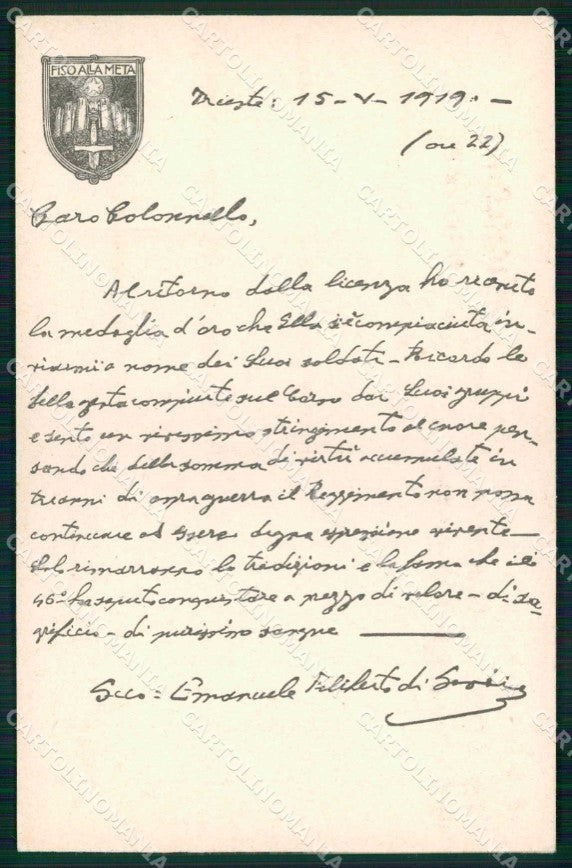 FISO ALLA META
Trieste: 15 - V - 1919. -
(ore 22)
Caro Colonnello,
Al ritorno dalla licenza ho ricevuto
la medaglia d'oro che Ella si è compiaciuta in-
viarmi a nome dei Suoi soldati - Ricordo le
belle gesta compiute sul Carso dai Suoi gruppi
e sento un vivissimo stringimento al cuore pen-
sando che della somma di virtù accumulate in
tre anni di aspra guerra il Reggimento non possa
continuare ad essere degna espressione vivente -
Solo rimarranno le tradizioni e la fama che il
46° ha saputo conquistare a prezzo di valore - di sa-
grificio - di purissimo sangue
Emanuele Filiberto di Savoia
CARTOLINOMANIA